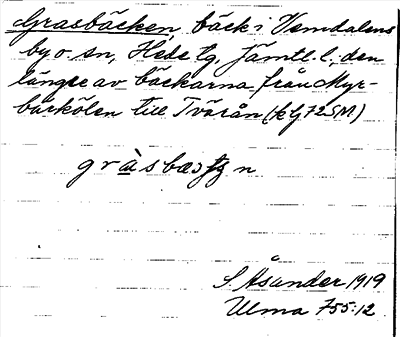 Grasbäcken, bäck i Vemdalens
by o. sn, Hede tg, Jämtl. l; den
längre av bäckarna från Myr-
bärkölen till Tvärån (k G725M)
S. Åsander 1919
Ulma 755:12